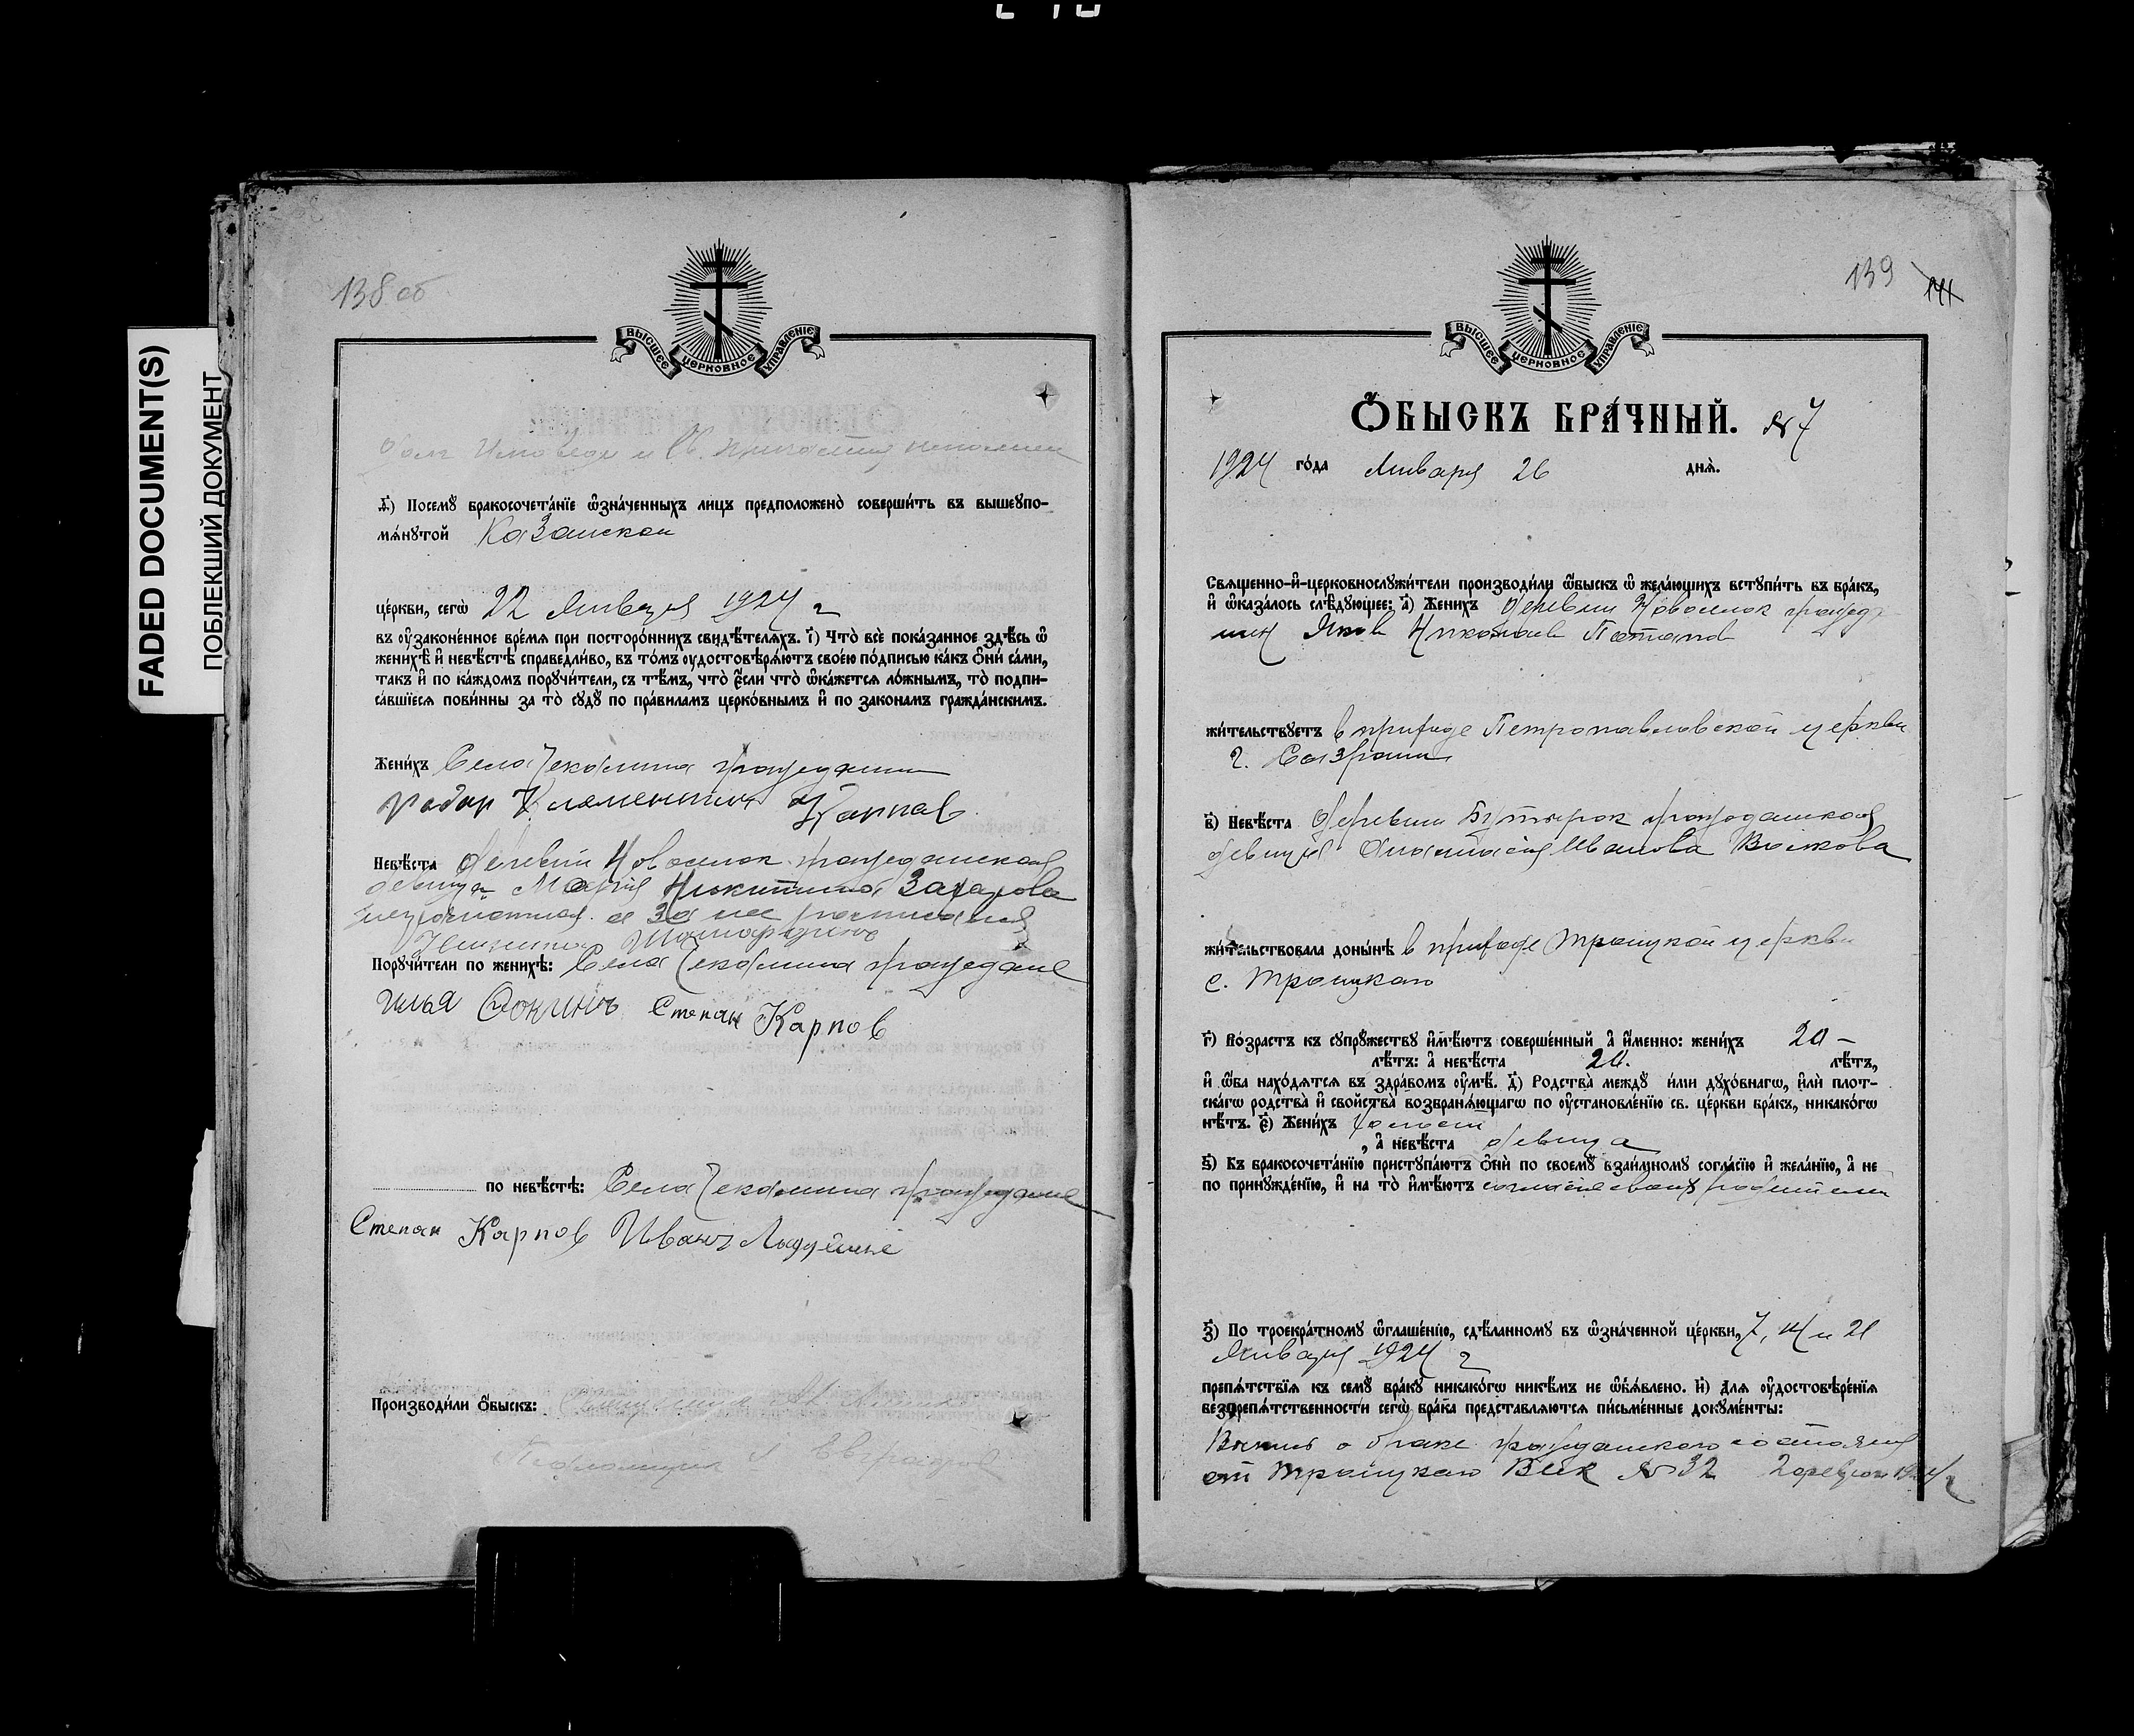 FADED DOCUMENT(S)
ПОБЛЕКШИЙ ДОКУМЕНТ
138 об
ВЫСШЕЕ ЦЕРКОВНОЕ УПРАВЛЕНІЕ
и Св. причастия
ѳ҃) Посемꙋ̀ бракосочета́нїе ѡ҆зна́ченныхъ лицъ предположено̀ соверши́ть въ вышеꙋпо-
мѧ́нꙋтой Казанской
це́ркви, сегѡ̀ 22 Января 1924 г
въ ᲂу҆законе́нное вре́мѧ при посторо́ннихъ свидѣ́телѧхъ. і҃) Что̀ всѐ пока́занное здѣ́сь ѡ҆
женихѣ̀ и҆ невѣ́стѣ справедли́во, въ то́мъ ᲂудостовѣрѧ́ютъ свое́ю по́дписью ка́къ ѻ҆ни́ са́ми,
такъ и҆ по ка́ждомъ порꙋчи́тели, съ тѣ́мъ, что̀ є҆́сли что̀ ѡ҆ка́жетсѧ ло́жнымъ, то̀ подпи-
са́вшїесѧ пови́нны за то̀ сꙋдꙋ̀ по пра́виламъ церко́внымъ и҆ по зако́намъ гражда́нскимъ.
Жени́хъ Села Чекалина гражданин
Карпов
Невѣ́ста деревни Новоселок гражданская
девица Мария Никитина Захарова
неграмотная а за нее
Порꙋчи́тели по женихѣ̀: Села Чекалина граждане
Илья Фокинъ Степан Карпов
по невѣ́стѣ: Села Чекалина граждане
Степан Карпов Иванъ
Производи́ли ѻ҆́быскъ:
Псаломщик Евграфов
139
141
ВЫСШЕЕ ЦЕРКОВНОЕ УПРАВЛЕНІЕ
Ѻ҆́БЫСКЪ БРА́ЧНЫЙ. №7
1924 го́да Января 26 днѧ̀.
Свѧщенно-и҆-церковнослꙋжи́тели производи́ли ѻ҆́быскъ ѡ҆ жела́ющихъ встꙋпи́ть въ бра́къ,
и҆ ѡ҆каза́лось слѣ́дꙋющее: а҃) Жени́хъ деревни Новоселок гражда
нин Яков Николаев Потапов
жи́тельствꙋетъ в приходе Петропавловской церкви
г. Сызрани
в҃) Невѣ́ста деревни Бутырок гражданская
девица Анастасия Иванова Волкова
жи́тельствовала доны́нѣ в приходе Троицкой церкви
с. Троицкаго
г҃) Во́зрастъ къ сꙋпрꙋ́жествꙋ и҆мѣ́ютъ соверше́нный а҆ и҆́менно: жени́хъ 20 –
лѣ́тъ: а҆ невѣ́ста лѣ́тъ,
и҆ ѻ҆́ба нахо́дѧтсѧ въ здра́вомъ ᲂу҆мѣ̀. д҃) Родства̀ междꙋ̀ и́ми дꙋхо́внагѡ, и҆лѝ пло́т-
скагѡ родства̀ и҆ сво́йства возбранѧ́ющагѡ по ᲂу҆становле́нїю св. це́ркви бра́къ, никако́гѡ
нѣ́тъ. є҃) Жени́хъ холост
, а҆ невѣ́ста девица
ѕ҃) Къ бракосочета́нїю пристꙋпа́ютъ ѻ҆нѝ по своемꙋ̀ взаи́мномꙋ согла́сїю и҆ жела́нїю, а҆ не
по принꙋжде́нїю, и҆ на то̀ и҆мѣ́ютъ согласие своих родителей
з҃) По троекра́тномꙋ ѡ҆глаше́нїю, сдѣ́ланномꙋ въ ѡ҆зна́ченной це́ркви, 7, 14 и 21
Января 1924 г
препѧ́тствїѧ къ семꙋ̀ бра́кꙋ никако́гѡ никѣ́мъ не ѡ҆б̾ѧ́влено. и҃) Длѧ ᲂу҆достовѣре́нїѧ
безпрепѧ́тственности сегѡ̀ бра́ка представлѧ́ютсѧ пи́сьменные докꙋме́нты:
Выпись о браке гражданского состояния
от Троицкаго Вик №32 2 февраля 1924 г